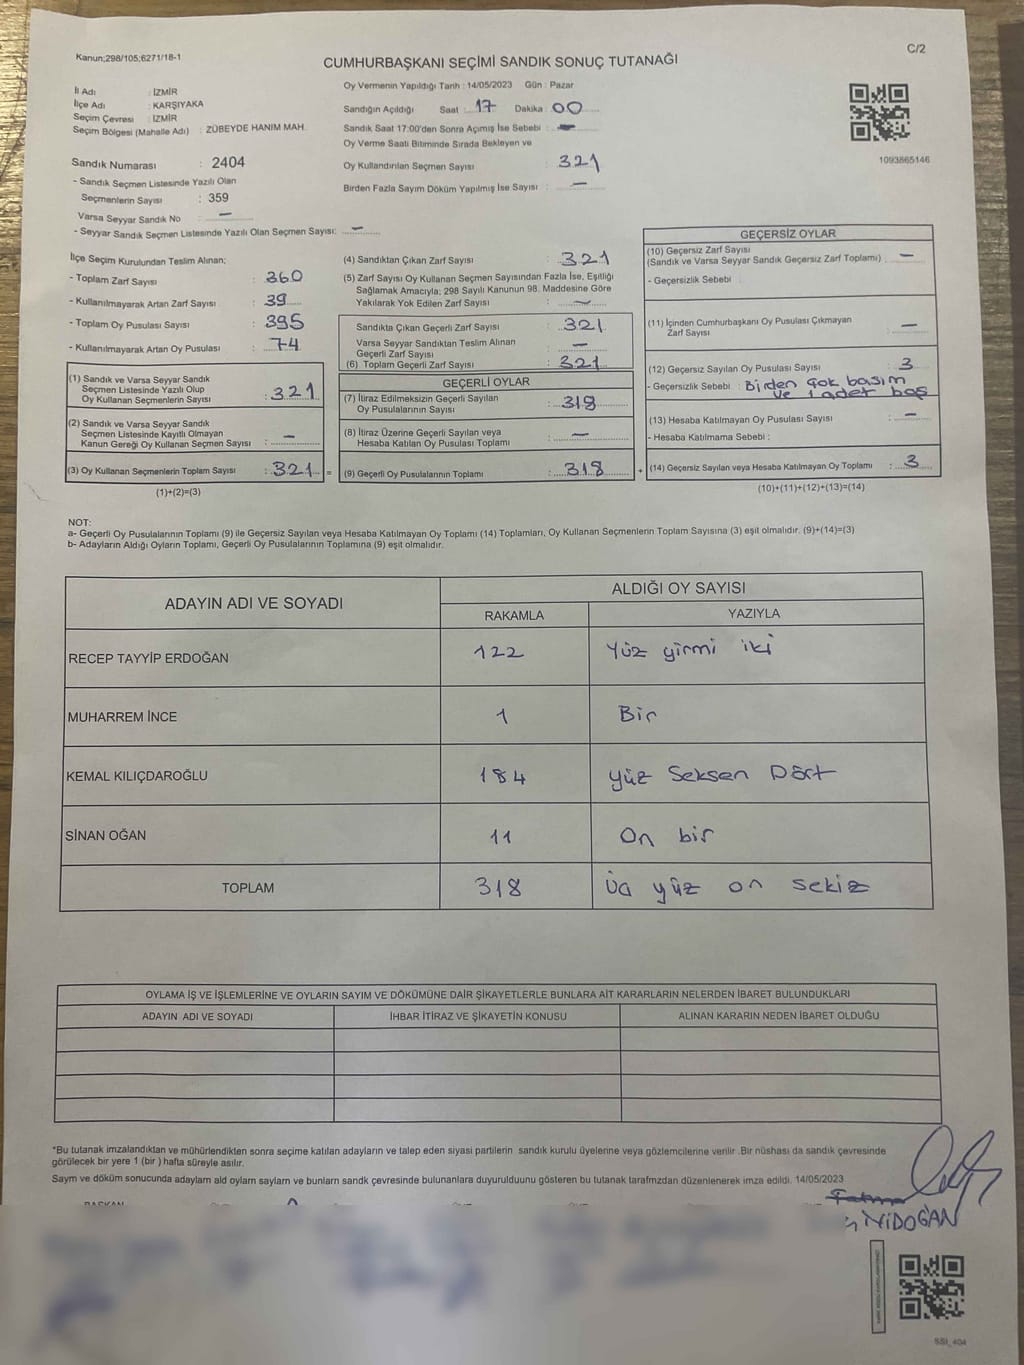 Kanun;298/105;6271/18-1
C/2
CUMHURBAŞKANI SEÇİMİ SANDIK SONUÇ TUTANAĞI
İl Adı : İZMİR
İlçe Adı : KARŞIYAKA
Seçim Çevresi : İZMİR
Seçim Bölgesi (Mahalle Adı) : ZÜBEYDE HANIM MAH.
Sandık Numarası : 2404
- Sandık Seçmen Listesinde Yazılı Olan
Seçmenlerin Sayısı : 359
Varsa Seyyar Sandık No —
- Seyyar Sandık Seçmen Listesinde Yazılı Olan Seçmen Sayısı: —
Oy Vermenin Yapıldığı Tarih : 14/05/2023 Gün : Pazar
Sandığın Açıldığı Saat : 17 Dakika : 00
Sandık Saat 17:00'den Sonra Açılmış İse Sebebi : —
Oy Verme Saati Bitiminde Sırada Bekleyen ve
Oy Kullandırılan Seçmen Sayısı : 321
Birden Fazla Sayım Döküm Yapılmış İse Sayısı : —
1093865146
İlçe Seçim Kurulundan Teslim Alınan;
- Toplam Zarf Sayısı : 360
- Kullanılmayarak Artan Zarf Sayısı : 39
- Toplam Oy Pusulası Sayısı : 395
- Kullanılmayarak Artan Oy Pusulası : 74
(1) Sandık ve Varsa Seyyar Sandık
Seçmen Listesinde Yazılı Olup
Oy Kullanan Seçmenlerin Sayısı : 321
(2) Sandık ve Varsa Seyyar Sandık
Seçmen Listesinde Kayıtlı Olmayan
Kanun Gereği Oy Kullanan Seçmen Sayısı : —
(3) Oy Kullanan Seçmenlerin Toplam Sayısı : 321 =
(1)+(2)=(3)
(4) Sandıktan Çıkan Zarf Sayısı : 321
(5) Zarf Sayısı Oy Kullanan Seçmen Sayısından Fazla İse, Eşitliği
Sağlamak Amacıyla; 298 Sayılı Kanunun 98. Maddesine Göre
Yakılarak Yok Edilen Zarf Sayısı : —
Sandıkta Çıkan Geçerli Zarf Sayısı : 321
Varsa Seyyar Sandıktan Teslim Alınan
Geçerli Zarf Sayısı : —
(6) Toplam Geçerli Zarf Sayısı : 321
GEÇERLİ OYLAR
(7) İtiraz Edilmeksizin Geçerli Sayılan
Oy Pusulalarının Sayısı : 318
(8) İtiraz Üzerine Geçerli Sayılan veya
Hesaba Katılan Oy Pusulası Toplamı : —
(9) Geçerli Oy Pusulalarının Toplamı : 318 +
GEÇERSİZ OYLAR
(10) Geçersiz Zarf Sayısı
(Sandık ve Varsa Seyyar Sandık Geçersiz Zarf Toplamı) : —
- Geçersizlik Sebebi :
(11) İçinden Cumhurbaşkanı Oy Pusulası Çıkmayan
Zarf Sayısı : —
(12) Geçersiz Sayılan Oy Pusulası Sayısı : 3
- Geçersizlik Sebebi : Birden çok basım
ve 1 adet boş
(13) Hesaba Katılmayan Oy Pusulası Sayısı : —
- Hesaba Katılmama Sebebi :
(14) Geçersiz Sayılan veya Hesaba Katılmayan Oy Toplamı : 3
(10)+(11)+(12)+(13)=(14)
NOT:
a- Geçerli Oy Pusulalarının Toplamı (9) ile Geçersiz Sayılan veya Hesaba Katılmayan Oy Toplamı (14) Toplamları, Oy Kullanan Seçmenlerin Toplam Sayısına (3) eşit olmalıdır. (9)+(14)=(3)
b- Adayların Aldığı Oyların Toplamı, Geçerli Oy Pusulalarının Toplamına (9) eşit olmalıdır.
ADAYIN ADI VE SOYADI ALDIĞI OY SAYISI
RAKAMLA YAZIYLA
RECEP TAYYİP ERDOĞAN 122 Yüz yirmi iki
MUHARREM İNCE 1 Bir
KEMAL KILIÇDAROĞLU 184 Yüz Seksen Dört
SİNAN OĞAN 11 On bir
TOPLAM 318 Üç yüz on sekiz
OYLAMA İŞ VE İŞLEMLERİNE VE OYLARIN SAYIM VE DÖKÜMÜNE DAİR ŞİKAYETLERLE BUNLARA AİT KARARLARIN NELERDEN İBARET BULUNDUKLARI
ADAYIN ADI VE SOYADI İHBAR İTİRAZ VE ŞİKAYETİN KONUSU ALINAN KARARIN NEDEN İBARET OLDUĞU
*Bu tutanak imzalandıktan ve mühürlendikten sonra seçime katılan adayların ve talep eden siyasi partilerin sandık kurulu üyelerine veya gözlemcilerine verilir .Bir nüshası da sandık çevresinde
görülecek bir yere 1 (bir ) hafta süreyle asılır.
Sayım ve döküm sonucunda adayların aldı oyların sayların ve bunların sandk çevresinde bulunanlara duyurulduunu gösteren bu tutanak tarafmzdan düzenlenerek imza edildi. 14/05/2023
BAŞKAN
SSİ_404